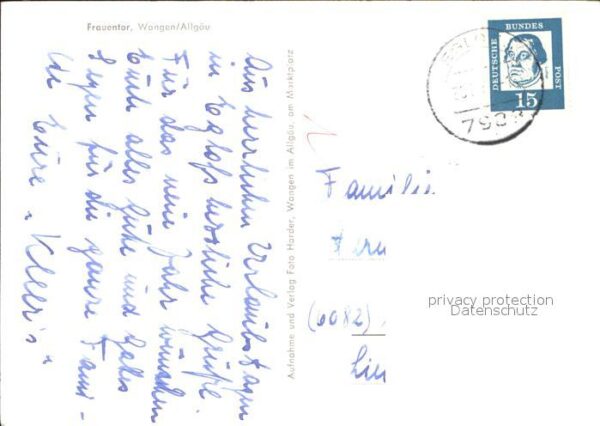 Frauentor, Wangen/Allgäu
Aus herrlichen Urlaubstagen
in Eglofs herzliche Grüße
Für das neue Jahr wünschen
Euch alles Gute und Gottes
Segen für die ganze Fami-
lie Eure "Kleer's"
Aufnahme und Verlag Foto Harder, Wangen im Allgäu, am Marktplatz
DEUTSCHE
BUNDES
POST
15
Familie
(6082)
privacy protection
Datenschutz